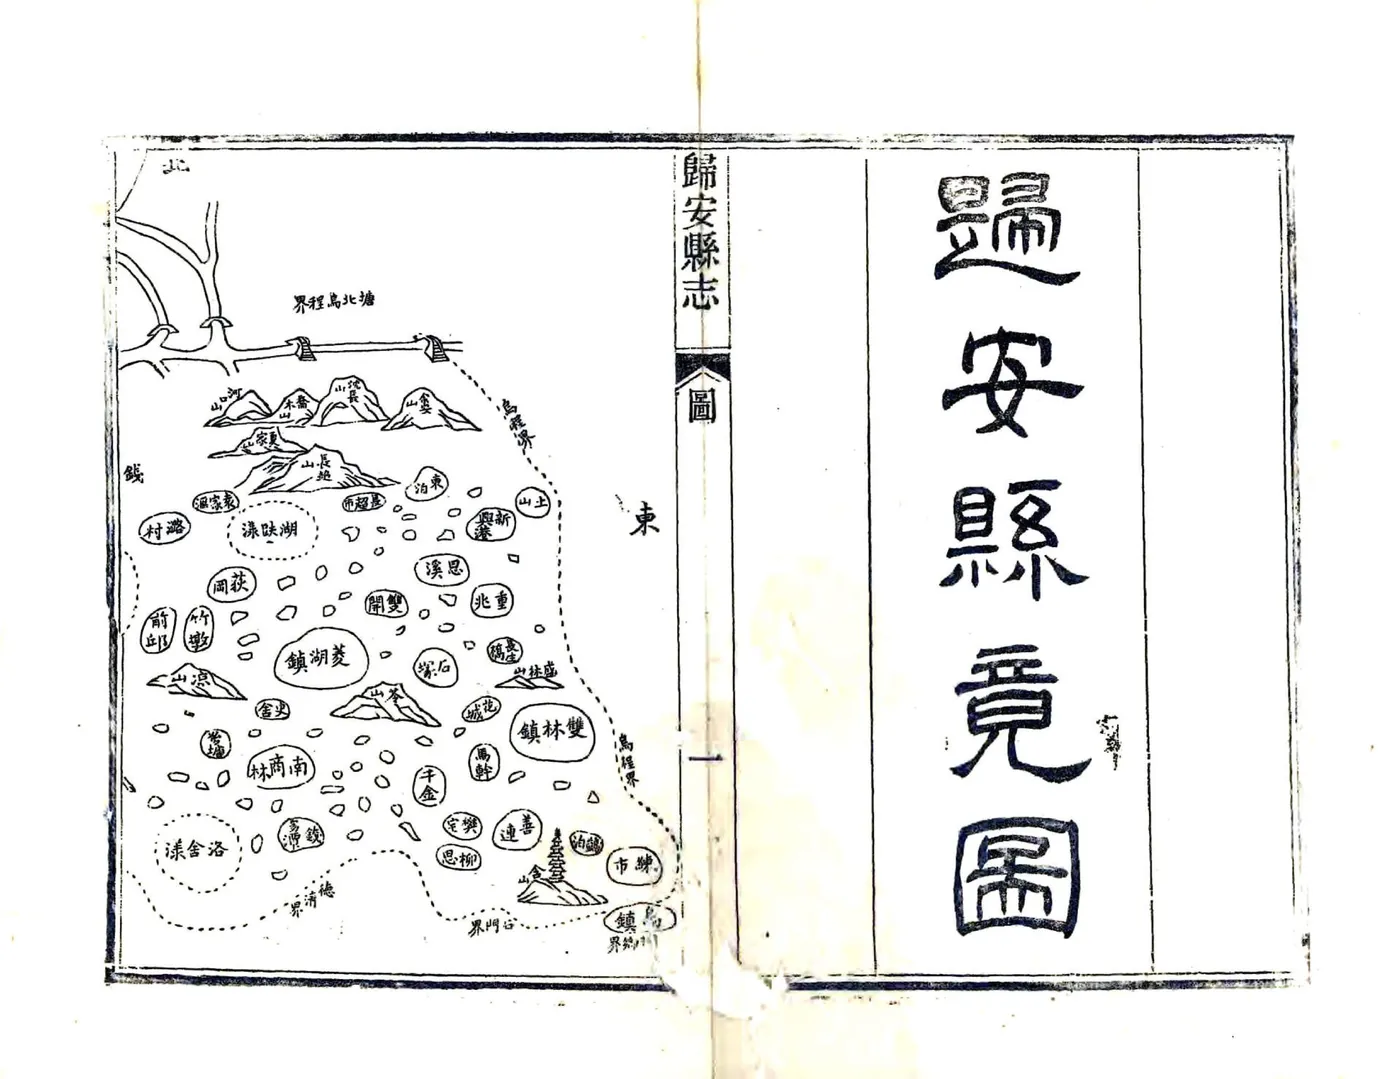 歸安縣竟圖
歸安縣志
圖
一
北
塘北烏程界
河口山
喬木山
沈長山
金婁山
夏家山
長超山
烏程界
錢
東
袁家滙
長超市
東泊
上山
潞村
湖趺漾
新興港
荻岡
思溪
雙開
重兆
前邱
竹墩
菱湖鎮
石塚
長生橋
盛林山
凉山
岑山
史舍
花城
雙林鎮
南商林
馬幹
千金
烏程界
洛舍漾
樊宅
柳思
善連
含山
練市
德清界
石門界
烏鎮
桐鄉界